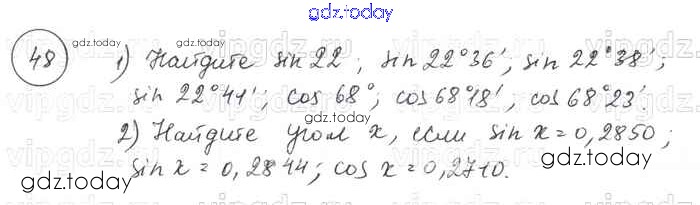 gdz.today
48 1) Найдите sin 22; sin 22°36'; sin 22°38';
sin 22°41'; cos 68°; cos 68°18', cos 68°23'
2) Найдите угол x, если sin x = 0,2850;
sin x = 0,2844; cos x = 0,2710.
gdz.today
gdz.today
gdz.today
gdz.today
gdz.today